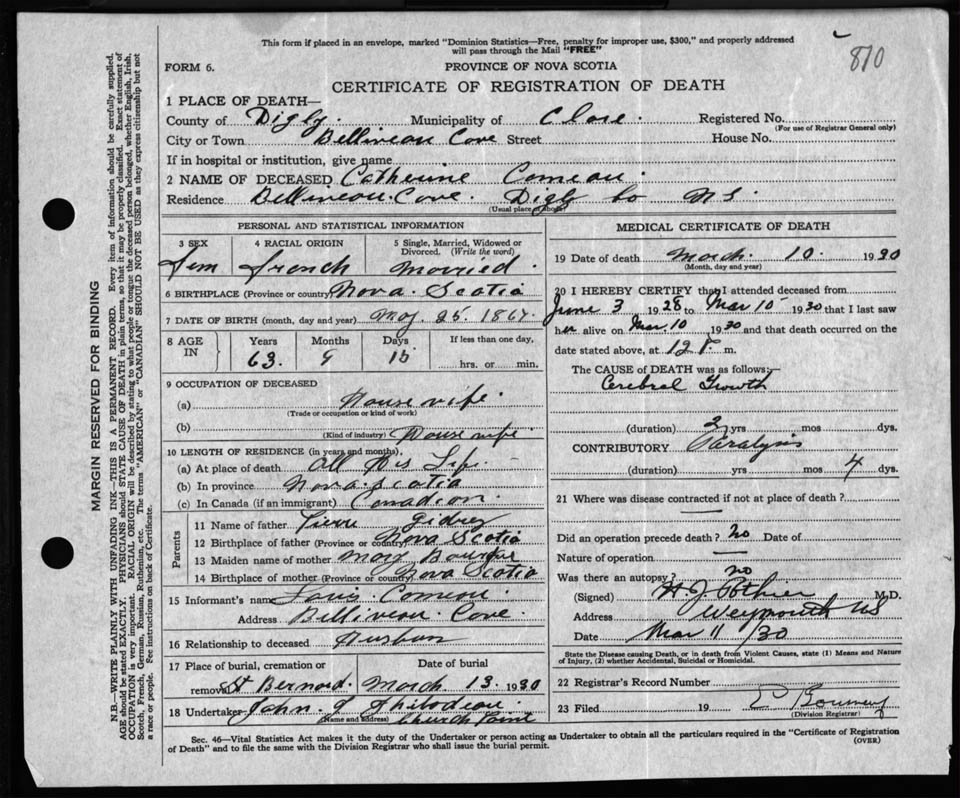 This form if placed in an envelope, marked "Dominion Statistics—Free, penalty for improper use, $300," and properly addressed
will pass through the Mail "FREE"
810
FORM 6.
PROVINCE OF NOVA SCOTIA
CERTIFICATE OF REGISTRATION OF DEATH
1 PLACE OF DEATH—
County of Digby. Municipality of Clare. Registered No.
(For use of Registrar General only)
City or Town Belliveau Cove Street House No.
If in hospital or institution, give name
2 NAME OF DECEASED Catherine Comeau.
Residence Belliveau. Cove. Digby Co NS
(Usual place of abode)
PERSONAL AND STATISTICAL INFORMATION
3 SEX 4 RACIAL ORIGIN 5 Single, Married, Widowed or Divorced. (Write the word)
Fem French Married.
6 BIRTHPLACE (Province or country) Nova. Scotia
7 DATE OF BIRTH (month, day and year) May. 25. 1867.
8 AGE IN Years Months Days If less than one day,
63. 9 15 hrs. or min.
9 OCCUPATION OF DECEASED
(a) House wife.
(Trade or occupation or kind of work)
(b) House wife.
(Kind of industry)
10 LENGTH OF RESIDENCE (in years and months),
(a) At place of death All His Life.
(b) In province Nova. Scotia
(c) In Canada (if an immigrant) Canadian.
Parents
11 Name of father Pierre Gidney
12 Birthplace of father (Province or country) Nova Scotia
13 Maiden name of mother Mary
14 Birthplace of mother (Province or country) Nova Scotia
15 Informant's name Louis Comeau.
Address Belliveau Cove.
16 Relationship to deceased Husban
17 Place of burial, cremation or removal Date of burial
St Bernard. March 13. 1930
18 Undertaker John. J Thibodeau.
(Name and address) Church Point
MEDICAL CERTIFICATE OF DEATH
19 Date of death March. 10. 1930
(Month, day and year)
20 I HEREBY CERTIFY that I attended deceased from
June 3 1928 to Mar 10 1930 that I last saw
her alive on Mar 10, 1930 and that death occurred on the
date stated above, at 12 P. m.
The CAUSE of DEATH was as follows:—
Cerebral Growth
(duration) 2 yrs mos dys.
CONTRIBUTORY Paralysis
(duration) yrs mos 4 dys.
21 Where was disease contracted if not at place of death?
Did an operation precede death? no Date of
Nature of operation
Was there an autopsy? no
(Signed) H. J. Pothier M.D.
Address Weymouth NS
Date Mar 11 /30
State the Disease causing Death, or in death from Violent Causes, state (1) Means and Nature
of Injury, (2) whether Accidental, Suicidal or Homicidal.
22 Registrar's Record Number
23 Filed 19
(Division Registrar)
Sec. 46—Vital Statistics Act makes it the duty of the Undertaker or person acting as Undertaker to obtain all the particulars required in the "Certificate of Registration
of Death" and to file the same with the Division Registrar who shall issue the burial permit.
(OVER)
MARGIN RESERVED FOR BINDING
N.B.—WRITE PLAINLY WITH UNFADING INK—THIS IS A PERMANENT RECORD. Every item of information should be carefully supplied.
AGE should be stated EXACTLY. PHYSICIANS should STATE CAUSE OF DEATH in plain terms, so that it may be properly classified. Exact statement of
OCCUPATION is very important. RACIAL ORIGIN will be described by stating to what people or tongue the deceased person belonged, whether English, Irish,
Scotch, French, German, Russian, Ruthenian, etc. The terms "AMERICAN" or "CANADIAN" SHOULD NOT BE USED as they express citizenship but not
a race or people. Fee instructions on back of Certificate.